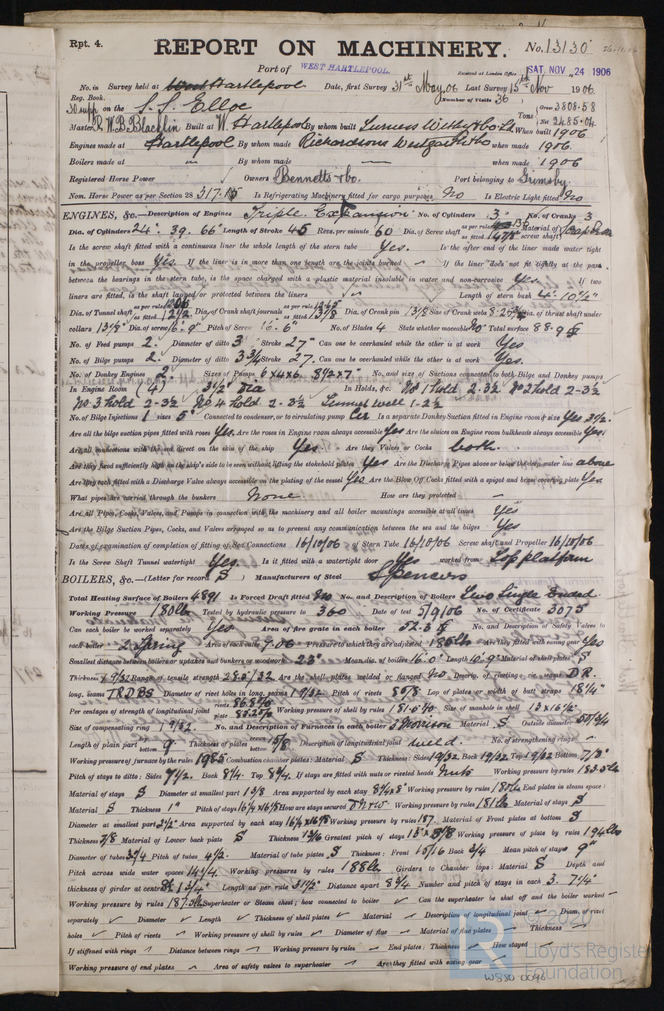 Rpt. 4.
REPORT ON MACHINERY.
No. 13130
Port of WEST HARTLEPOOL.
Received at London Office SAT. NOV. 24 1906
No. in Survey held at Hartlepool Date, first Survey 31st May 06 Last Survey 15th Nov 1906.
Reg. Book. (Number of Visits 36)
30 supp on the S.S. Elloe Tons Gross 3808.58
Net 2485.04
Master R. W. B. Blacklin Built at W. Hartlepool By whom built When built 1906
Engines made at Hartlepool By whom made Richardsons Westgarth & Co when made 1906.
Boilers made at — By whom made — when made 1906
Registered Horse Power Owners Bennetts & Co. Port belonging to Grimsby
Nom. Horse Power as per Section 28 317. Is Refrigerating Machinery fitted for cargo purposes No Is Electric Light fitted No
ENGINES, &c.—Description of Engines Triple Expansion No. of Cylinders 3 No. of Cranks 3
Dia. of Cylinders 24". 39. 66" Length of Stroke 45 Revs. per minute 60 Dia. of Screw shaft as per rule as fitted Material of screw shaft
Is the screw shaft fitted with a continuous liner the whole length of the stern tube Yes. Is the after end of the liner made water tight
in the propeller boss Yes. If the liner is in more than one length are the joints burned — If the liner does not fit tightly at the part
between the bearings in the stern tube, is the space charged with a plastic material insoluble in water and non-corrosive Yes If two
liners are fitted, is the shaft lapped or protected between the liners Length of stern bush 4' 10½"
Dia. of Tunnel shaft as per rule as fitted 12½ Dia. of Crank shaft journals as per rule as fitted 13⅛ Dia. of Crank pin 13⅛ Size of Crank webs Dia. of thrust shaft under
collars 13⅛" Dia. of screw 16'. 9" Pitch of Screw 16. 6" No. of Blades 4 State whether moveable No Total surface 88.9
No. of Feed pumps 2. Diameter of ditto 3 Stroke 27" Can one be overhauled while the other is at work Yes
No. of Bilge pumps 2. Diameter of ditto 3¾ Stroke 27. Can one be overhauled while the other is at work Yes.
No. of Donkey Engines 2 Sizes of Pumps 6x4x6 8½x7" No. and size of Suctions connected to both Bilge and Donkey pumps
In Engine Room 3½" Dia In Holds, &c. No 1 hold 2-3½ No 2 hold 2-3½
No 3 hold 2-3½ No 4 hold 2.3½ Tunnel Well 1-2½
No. of Bilge Injections 1 sizes 5" Connected to condenser, or to circulating pump Cir Is a separate Donkey Suction fitted in Engine room & size Yes 2½.
Are all the bilge suction pipes fitted with roses Yes. Are the roses in Engine room always accessible Yes Are the sluices on Engine room bulkheads always accessible Yes.
Are all connections with the sea direct on the skin of the ship Yes Are they Valves or Cocks both.
Are they fixed sufficiently high on the ship's side to be seen without lifting the stokehold plates Yes Are the Discharge Pipes above or below the deep water line above
Are they each fitted with a Discharge Valve always accessible on the plating of the vessel Yes Are the Blow Off Cocks fitted with a spigot and brass covering plate Yes
What pipes are carried through the bunkers None How are they protected —
Are all Pipes, Cocks, Valves, and Pumps in connection with the machinery and all boiler mountings accessible at all times Yes
Are the Bilge Suction Pipes, Cocks, and Valves arranged so as to prevent any communication between the sea and the bilges Yes
Dates of examination of completion of fitting of Sea Connections 16/10/06 of Stern Tube 16/10/06 Screw shaft and Propeller 16/10/06
Is the Screw Shaft Tunnel watertight Yes. Is it fitted with a watertight door Yes worked from Top platform
BOILERS, &c.—(Letter for record S) Manufacturers of Steel Spencers
Total Heating Surface of Boilers 4891 Is Forced Draft fitted No No. and Description of Boilers Two Single Ended
Working Pressure 180 lb Tested by hydraulic pressure to 360 Date of test 5/9/06 No. of Certificate 3075
Can each boiler be worked separately Yes Area of fire grate in each boiler 52.3 No. and Description of Safety Valves to
each boiler 2 Spring Area of each valve 7.06 Pressure to which they are adjusted 185 lb Are they fitted with easing gear Yes
Smallest distance between boilers or uptakes and bunkers or woodwork 23" Mean dia. of boilers 16'.0" Length 10'.9" Material of shell plates S
Thickness 1 9/32 Range of tensile strength 28.5/32 Are the shell plates welded or flanged No Descrip. of riveting: cir. seams D R.
long. seams TRDBS Diameter of rivet holes in long. seams 1 9/32 Pitch of rivets 8⅝ Lap of plates or width of butt straps 18¼"
Per centages of strength of longitudinal joint rivets plate Working pressure of shell by rules Size of manhole in shell
Size of compensating ring 1 9/32 No. and Description of Furnaces in each boiler 3 Morrison Material S Outside diameter
Length of plain part top bottom 9" Thickness of plates crown bottom 5/8 Description of longitudinal joint weld. No. of strengthening rings —
Working pressure of furnace by the rules 198 Combustion chamber plates: Material S Thickness: Sides 19/32 Back 19/32 Top 19/32 Bottom 7/8"
Pitch of stays to ditto: Sides 9½. Back 8¾. Top 8¾. If stays are fitted with nuts or riveted heads Nuts Working pressure by rules
Material of stays S Diameter at smallest part Area supported by each stay Working pressure by rules 180 lb End plates in steam space:
Material S Thickness 1" Pitch of stays How are stays secured Working pressure by rules 181 lb Material of stays S
Diameter at smallest part 2½" Area supported by each stay Working pressure by rules 187. Material of Front plates at bottom S
Thickness 7/8 Material of Lower back plate S Thickness 13/16 Greatest pitch of stays Working pressure of plate by rules 194 lbs
Diameter of tubes 3¼ Pitch of tubes 4½. Material of tube plates S Thickness: Front 15/16 Back 3/4 Mean pitch of stays 9"
Pitch across wide water spaces 14¼. Working pressures by rules 188 lb Girders to Chamber tops: Material S Depth and
thickness of girder at centre Length as per rule 31½" Distance apart 8¾ Number and pitch of stays in each 3. 7¼"
Working pressure by rules Superheater or Steam chest; how connected to boiler Can the superheater be shut off and the boiler worked
separately Diameter Length Thickness of shell plates Material Description of longitudinal joint Diam. of rivet
holes Pitch of rivets Working pressure of shell by rules Diameter of flue Material of flue plates Thickness
If stiffened with rings Distance between rings Working pressure by rules End plates: Thickness How stayed
Working pressure of end plates Area of safety valves to superheater Are they fitted with easing gear
© 2020
Lloyd's Register
Foundation
W580 0096